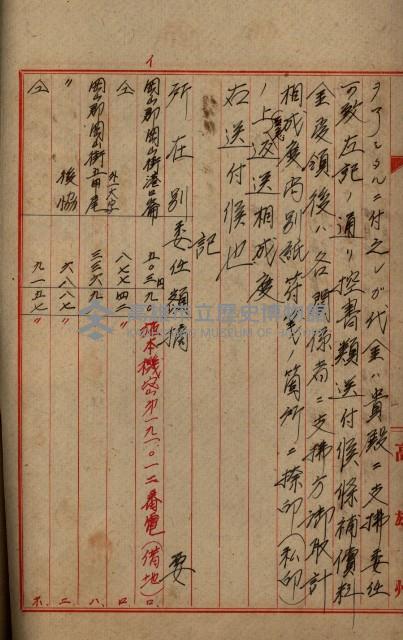 ヲ了シタルニ付之レガ代金ハ貴殿ニ支拂委任
可致左記ノ通リ提書類送付候條補償粒
金受領後ハ各関係者ニ支拂方御取計
相成度尚別紙符箋ノ箇所ニ捺印(私印)
ノ上返送相成度
右送付候也
記
所在別 委任額 摘要
岡山郡岡山街港口崙 五〇三円九〇
仝 外一大字 八七七四三 〃
岡山郡岡山街五甲尾 三三六九
〃 後協 六八八七 〃
仝 九一五七 〃
一九一〇一二番電(借地)
イ
ロ
ハ
ニ
ホ
高雄州
高雄市立歷史博物館